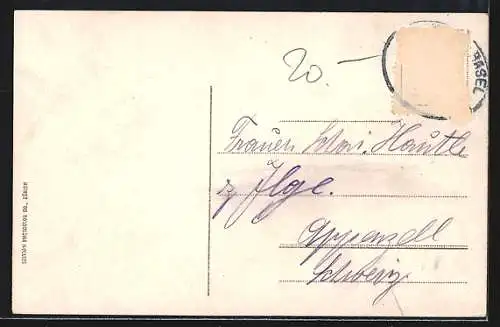 20.-
BASEL
Frauen Hautle
z. Ilge.
Appenzell
Schweiz
EDITION PHOTOGLOB CO., ZÜRICH